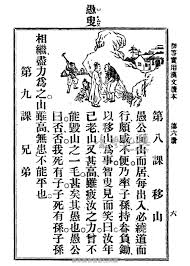 初等實用漢文讀本
六
第八課 移山
愚公面山而居每出入必繞道而
行頗感不便乃率子孫持畚負鍤
以移山爲事智叟見而笑之曰汝
已老山又甚高雖疲汝之力曾不
能毀山之一毛甚矣其愚也愚公
曰否否我死有子子死有孫子孫
愚叟
相繼盡力爲之山雖高無患不能平也
第九課 兄弟